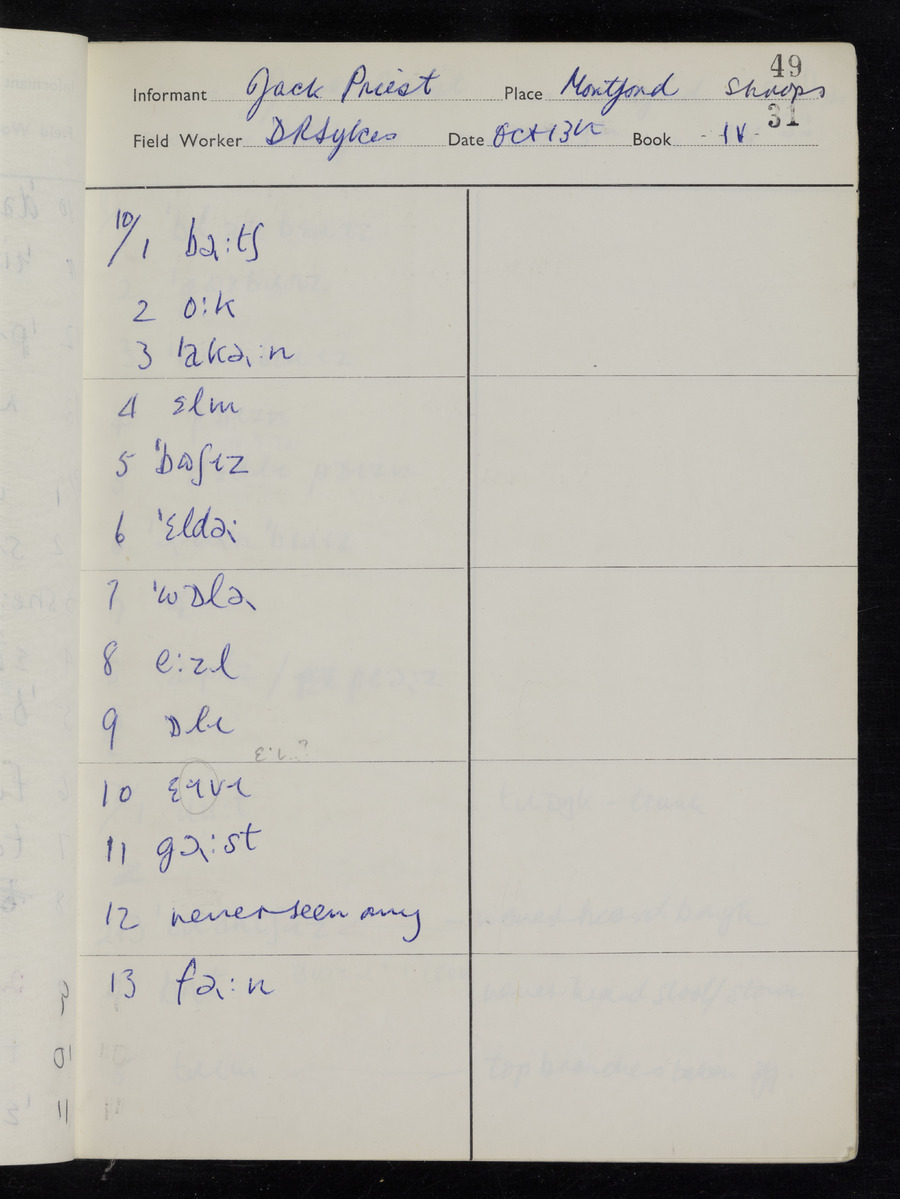 49
Informant Jack Priest Place Montford Shrops
31
Field Worker DRSykes Date Oct 13th Book IV
10/1 bəɻːtʃ
2 oːk
3 ˈakəɻːn
4 ɛlm
5 ˈbʊʃɪz
6 ˈɛldəɻ
7 ˈwɒləɻ
8 eːzl
9 ɒlɪ
10 ɛɪvɪ
11 gəɻːst
12 never seen any
13 fəɻːn